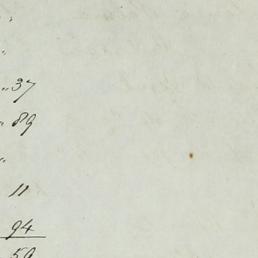 "
"
" 37
" 89
"
11
94
59